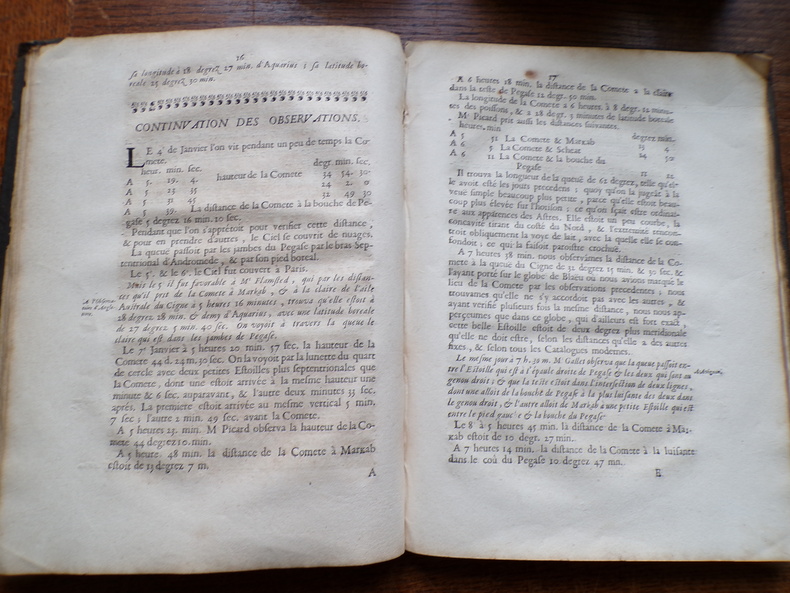 16
sa longitude à 18 degrez 27 min. d'Aquarius ; sa latitude bo-
reale 25 degrez 30 min.
CONTINVATION DES OBSERVATIONS.
LE 4e de Janvier l'on vit pendant un peu de temps la Co-
mete.
heur. min. sec. degr. min. sec.
A 5. 19. 4. hauteur de la Comete 34 54. 30.
A 5 23 35 34 2. 0
A 5 31 45 32 49 30
A 5 39. La distance de la Comete à la bouche de Pe-
gase 5 degrez 16 min. 20 sec.
Pendant que l'on s'aprêtoit pour verifier cette distance,
& pour en prendre d'autres, le Ciel se couvrit de nuages.
La queuë passoit par les jambes du Pegase par le bras Sep-
tentrional d'Andromede, & par son pied boreal.
Le 5e. & le 6e. le Ciel fut couvert à Paris.
Mais le 5 il fut favorable à Mr Flamsted, qui par les distan-
ces qu'il prit de la Comete à Markab, & à la claire de l'aîle
Australe du Cigne à 5 heures 16 minutes, trouva qu'elle estoit à
28 degrez 28 min. & demy d'Aquarius, avec une latitude boreale
de 27 degrez 5 min. 40 sec. On voyoit à travers la queuë le
claire qui est dans les jambes de Pegase.
Le 7e Janvier à 5 heures 20 min. 57 sec. la hauteur de la
Comete 44 d. 24 m. 30 sec. On la voyoit par la lunette du quart
de cercle avec deux petites Estoilles plus septentrionales que
la Comete, dont une estoit arrivée à la mesme hauteur une
minute & 6 sec. auparavant, & l'autre deux minutes 33 sec.
aprés. La premiere estoit arrivée au mesme vertical 5 min.
7 sec ; l'autre 2 min. 49 sec. avant la Comete.
A 5 heures 25. min. M Picard observa la hauteur de la Co-
mete 44 degrez 10. min.
A 5 heure. 48 min. la distance de la Comete à Markab
estoit de 13 degrez 7 m.
A
17
A 6 heures 18 min. la distance de la Comete à la claire
dans la teste de Pegase 12 degr. 50 min.
La longitude de la Comete à 6 heures à 8 degr. 12 minu-
tes des poissons, & à 28 degr. 3 minutes de latitude boreale
M. Picard prit aussi les distances suivantes.
heures, min degrez min.
A 5 51 La Comete & Markab
A 6 5 La Comete & Scheat
A 6 11 La Comete & la bouche du
Pegase
Il trouva la longueur de la queuë de 61 degrez, telle qu'el-
le avoit esté les jours precedens ; quoy qu'on la jugeât à la
veuë simple beaucoup plus petite, parce qu'elle estoit beau-
coup plus élevée sur l'horison ; ce qu'on sçait estre ordinai-
re aux apparences des Astres. Elle estoit un peu courbe, la
concavité tirant du costé du Nord, & l'extremité rencon-
troit obliquement la voye de lait, avec la quelle elle se con-
fondoit ; ce qui la faisoit paroistre crochuë.
A 7 heures 38 min. nous observâmes la distance de la Co-
mete à la queuë du Cigne de 31 degrez 15 min. & 30 sec. &
l'ayant porté sur le globe de Blaëu où nous avions marqué le
lieu de la Comete par les observations precedentes ; nous
trouvâmes qu'elle ne s'y accordoit pas avec les autres, &
ayant verifié plusieurs fois la mesme distance, nous nous ap-
perçûmes que dans ce globe, qui d'ailleurs est fort exact,
cette belle Estoille estoit de deux degrez plus meridionale
qu'elle ne doit estre, selon les distances qu'elle a des autres
fixes, & selon tous les Catalogues modernes.
Le mesme jour à 7 h. 30 m. M Gallet observa que la queuë passoit en-
tre l'Estoille qui est à l'épaule droite de Pegase & les deux qui sont au
genou droit ; & que la teste estoit dans l'intersection de deux lignes,
dont une alloit de la bouche de Pegase à la plus luisante des deux dans
le genou droit, & l'autre alloit de Markab à une petite Estoille qui est
entre le pied gauche & la bouche du Pegase
Le 8e à 5 heures 45 min. la distance de la Comete à Mar-
kab estoit de 10 degr. 27 min.
A 7 heures 14 min. la distance de la Comete à la luisante
dans le coû du Pegase 10 degrez 47 mn.
E